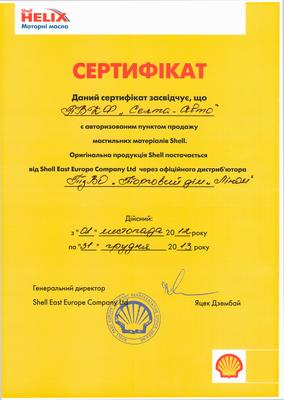 Shell
HELIX
Моторні масла
СЕРТИФІКАТ
Даний сертифікат засвідчує, що
ПВКФ „Селта-Авто"
є авторизованим пунктом продажу
мастильних матеріалів Shell.
Оригінальна продукція Shell постачається
від Shell East Europe Company Ltd через офіційного дистриб'ютора
„Торговий дім
Дійсний:
з "01" листопада 2012 року
по "31" грудня 2013 року
Генеральний директор
Shell East Europe Company Ltd
Яцек Дзембай